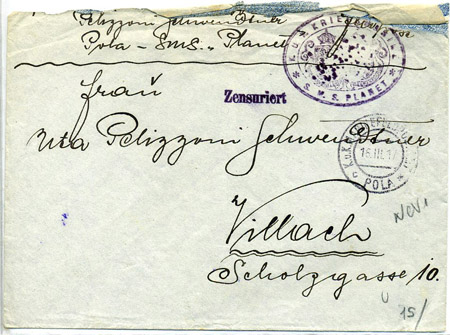 Pelizzoni Schwendtner
Pola - SMS. "Planet
K.U.K. KRIEGSM
S.M.S. PLANET
Zensuriert
Frau
Uta Pelizzoni Schwendtner
K.u.K.
16.III.17
POLA
Villach
Scholzgasse 10.
15/